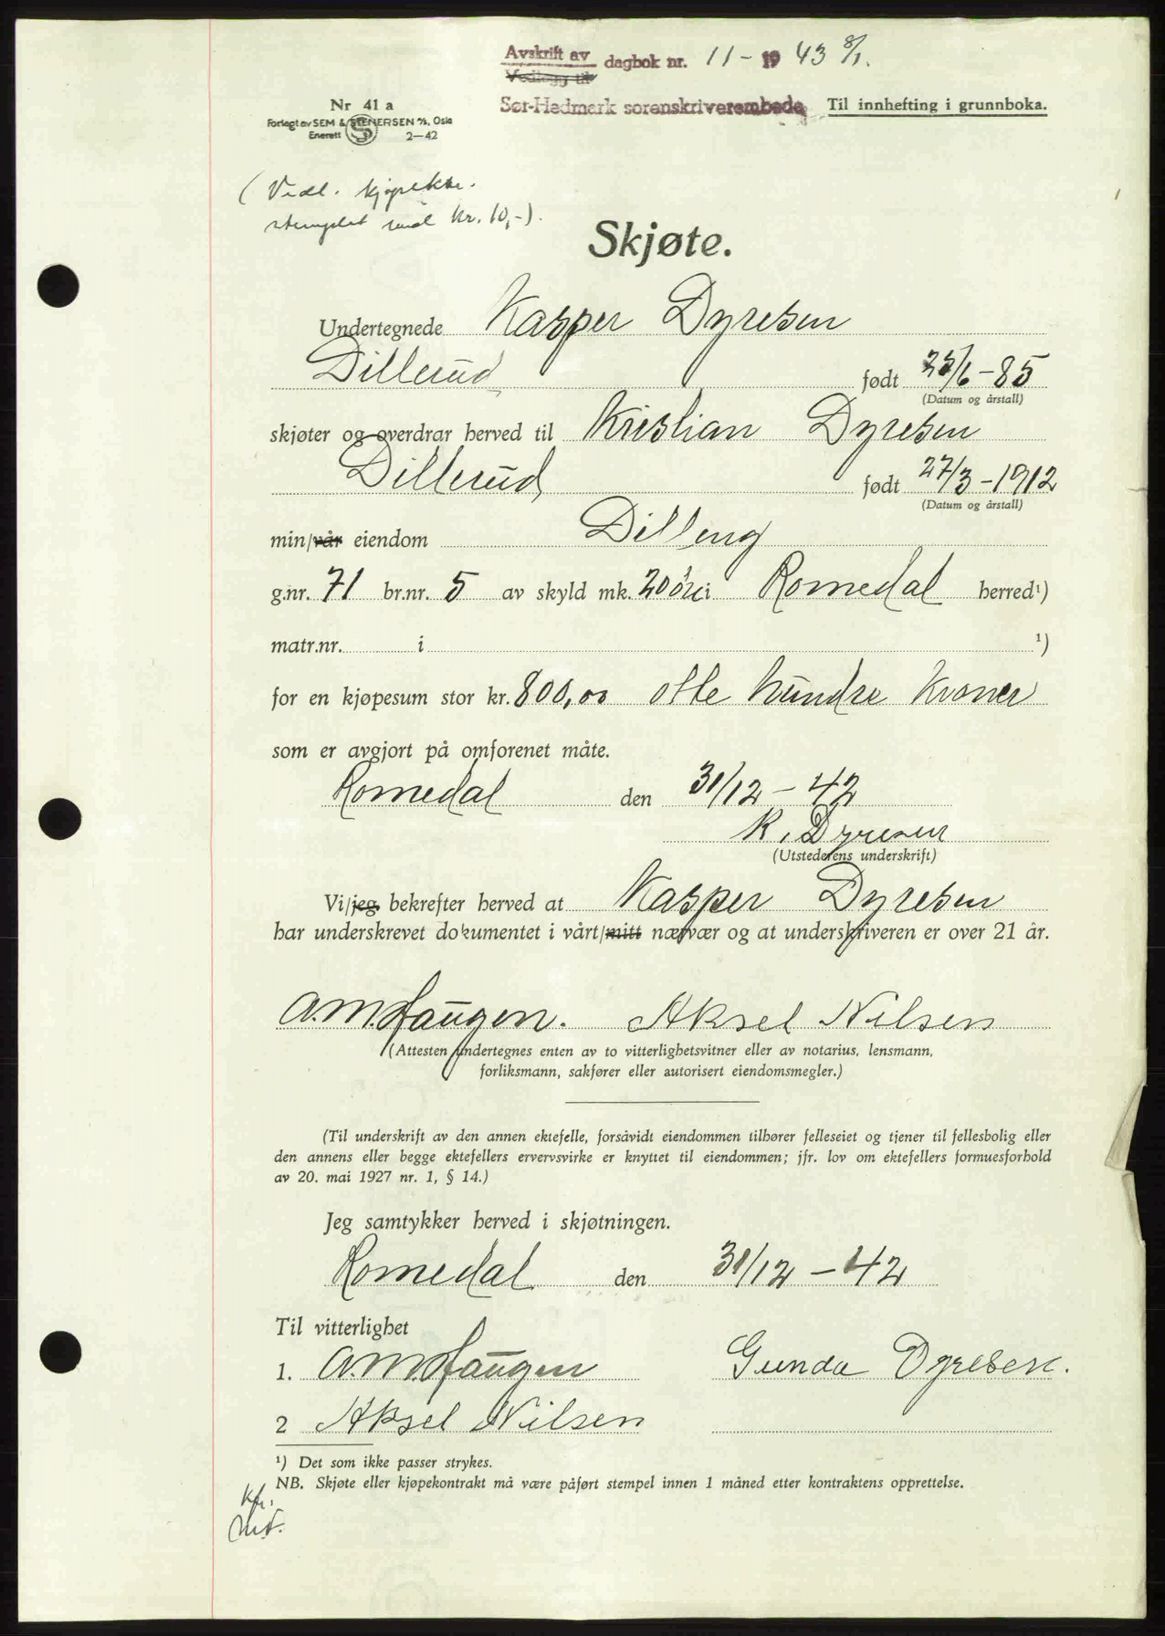 Avskrift av dagbok nr. 11 - 1943 8/1.
Vedlegg til
Sør-Hedmark sorenskriverembede Til innhefting i grunnboka.
Nr 41 a
Forlagt av SEM & STENERSEN A/S, Oslo
Enerett S 2—42
(Vedl. kjøpektr.
stemplet med kr. 10,-).
Skjøte.
Undertegnede Kasper Dyresen
Dillerud født 25/6 - 85
(Datum og årstall)
skjøter og overdrar herved til Kristian Dyresen
Dillerud født 27/3 - 1912
(Datum og årstall)
min/vår eiendom Dilleng
g.nr. 71 br.nr. 5 av skyld mk. 20 øre i Romedal herred¹)
matr.nr. i ¹)
for en kjøpesum stor kr. 800,00 otte hundre kroner
som er avgjort på omforenet måte.
Romedal den 31/12 - 42
K. Dyresen
(Utstederens underskrift)
Vi/jeg bekrefter herved at Kasper Dyresen
har underskrevet dokumentet i vårt/mitt nærvær og at underskriveren er over 21 år.
A.M. Haugen. Aksel Nilsen
(Attesten undertegnes enten av to vitterlighetsvitner eller av notarius, lensmann,
forliksmann, sakfører eller autorisert eiendomsmegler.)
(Til underskrift av den annen ektefelle, forsåvidt eiendommen tilhører felleseiet og tjener til fellesbolig eller
den annens eller begge ektefellers ervervsvirke er knyttet til eiendommen; jfr. lov om ektefellers formuesforhold
av 20. mai 1927 nr. 1, § 14.)
Jeg samtykker herved i skjøtningen.
Romedal den 31/12 - 42
Til vitterlighet
1. A.M. Haugen Gunda Dyresen.
2 Aksel Nilsen
¹) Det som ikke passer strykes.
NB. Skjøte eller kjøpekontrakt må være påført stempel innen 1 måned etter kontraktens opprettelse.